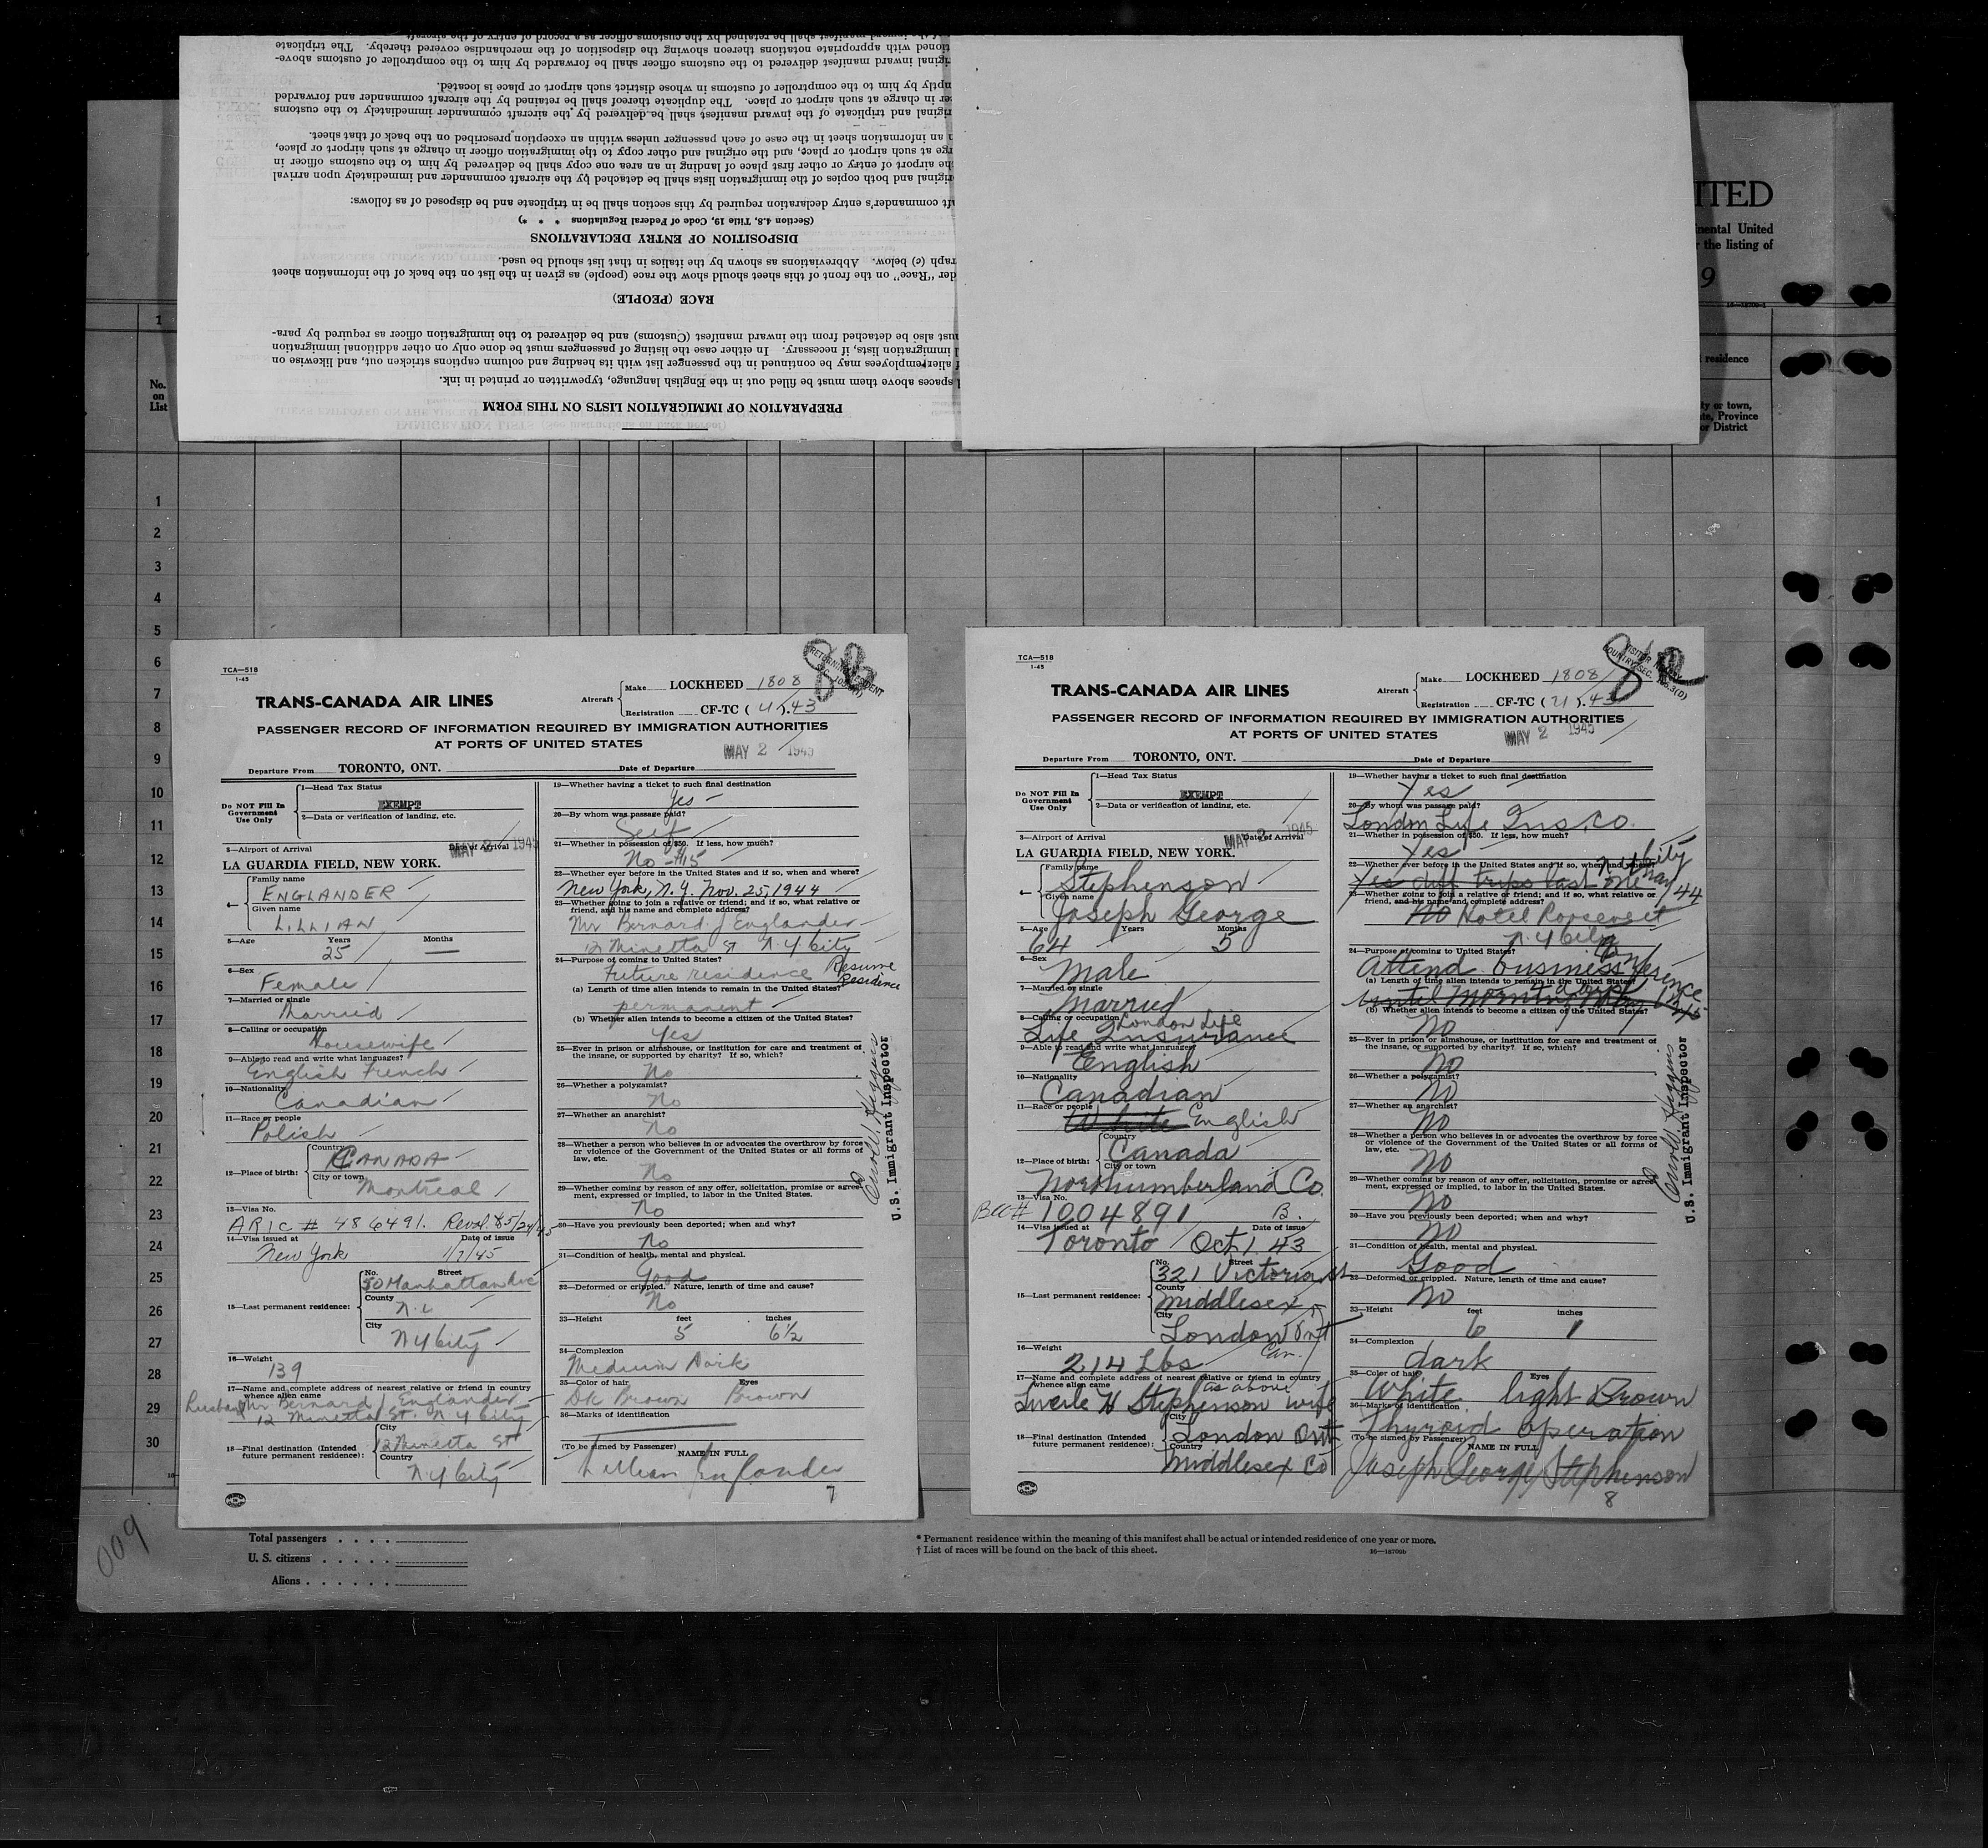 of the inward manifest shall be retained by the customs officer as a record of entry of the aircraft.
tioned with appropriate notations thereon showing the disposition of the merchandise covered thereby. The triplicate
iginal inward manifest delivered to the customs officer shall be forwarded by him to the comptroller of customs above-
mptly by him to the comptroller of customs in whose district such airport or place is located.
er in charge at such airport or place. The duplicate thereof shall be retained by the aircraft commander and forwarded
iginal and triplicate of the inward manifest shall be delivered by the aircraft commander immediately to the customs
n an information sheet in the case of each passenger unless within an exception prescribed on the back of that sheet.
rge at such airport or place, and the original and other copy to the immigration officer in charge at such airport or place,
he airport of entry or other first place of landing in an area one copy shall be delivered by him to the customs officer in
original and both copies of the immigration lists shall be detached by the aircraft commander and immediately upon arrival
aft commander's entry declaration required by this section shall be in triplicate and be disposed of as follows:
(Section 4.8, Title 19, Code of Federal Regulations * * *)
DISPOSITION OF ENTRY DECLARATIONS
raph (c) below. Abbreviations as shown by the italics in that list should be used.
der "Race" on the front of this sheet should show the race (people) as given in the list on the back of the information sheet
RACE (PEOPLE)
must also be detached from the inward manifest (Customs) and be delivered to the immigration officer as required by para-
l immigration lists, if necessary. In either case the listing of passengers must be done only on other additional immigration
f alien employees may be continued in the passenger list with its heading and column captions stricken out, and likewise on
l spaces above them must be filled out in the English language, typewritten or printed in ink.
PREPARATION OF IMMIGRATION LISTS ON THIS FORM
ITED
inental United
r the listing of
9
residence
ity or town,
ate, Province
or District
1
No.
on
List
1
2
3
4
5
6
7
8
9
10
11
12
13
14
15
16
17
18
19
20
21
22
23
24
25
26
27
28
29
30
TCA—518
1-45
TRANS-CANADA AIR LINES
Aircraft
Make LOCKHEED 1808
Registration CF-TC ( ). 43
PASSENGER RECORD OF INFORMATION REQUIRED BY IMMIGRATION AUTHORITIES
AT PORTS OF UNITED STATES
MAY 2 1945
Departure From TORONTO, ONT. Date of Departure
Do NOT Fill In
Government
Use Only
1—Head Tax Status
EXEMPT
2—Data or verification of landing, etc.
3—Airport of Arrival Date of Arrival
MAY 2 1945
LA GUARDIA FIELD, NEW YORK.
4—
Family name
ENGLANDER
Given name
LILLIAN
5—Age Years Months
25 —
6—Sex
Female
7—Married or single
Married
8—Calling or occupation
Housewife
9—Able to read and write what languages?
English French
10—Nationality
Canadian
11—Race or people
Polish
12—Place of birth:
Country
CANADA
City or town
Montreal
13—Visa No.
ARIC # 486491. Reval. 5/24/45
14—Visa issued at Date of issue
New York 1/7/45
15—Last permanent residence:
No. Street
50 Manhattan Ave
County
N.Y.
City
N Y City
16—Weight
139
17—Name and complete address of nearest relative or friend in country
whence alien came
Husband Mr Bernard J Englander
12 Minetta St. N.Y City
18—Final destination (Intended
future permanent residence):
City
12 Minetta St
Country
N.Y City
19—Whether having a ticket to such final destination
Yes
20—By whom was passage paid?
Self
21—Whether in possession of $50. If less, how much?
No - $15
22—Whether ever before in the United States and if so, when and where?
New York, N.Y. Nov. 25, 1944
23—Whether going to join a relative or friend; and if so, what relative or
friend, and his name and complete address?
Mr Bernard J Englander
12 Minetta St N.Y City
24—Purpose of coming to United States?
Future residence Resume Residence
(a) Length of time alien intends to remain in the United States?
permanent
(b) Whether alien intends to become a citizen of the United States?
Yes
25—Ever in prison or almshouse, or institution for care and treatment of
the insane, or supported by charity? If so, which?
No
26—Whether a polygamist?
No
27—Whether an anarchist?
No
28—Whether a person who believes in or advocates the overthrow by force
or violence of the Government of the United States or all forms of
law, etc.
No
29—Whether coming by reason of any offer, solicitation, promise or agree-
ment, expressed or implied, to labor in the United States.
No
30—Have you previously been deported; when and why?
No
31—Condition of health, mental and physical.
Good
32—Deformed or crippled. Nature, length of time and cause?
No
33—Height feet inches
5 6½
34—Complexion
Medium Dark
35—Color of hair Eyes
Dk Brown Brown
36—Marks of identification
(To be signed by Passenger) NAME IN FULL
Lillian Englander
7
U.S. Immigrant Inspector
TCA—518
1-45
TRANS-CANADA AIR LINES
Aircraft
Make LOCKHEED 1808
Registration CF-TC ( ). 43
PASSENGER RECORD OF INFORMATION REQUIRED BY IMMIGRATION AUTHORITIES
AT PORTS OF UNITED STATES
MAY 2 1945
Departure From TORONTO, ONT. Date of Departure
Do NOT Fill In
Government
Use Only
1—Head Tax Status
EXEMPT
2—Data or verification of landing, etc.
3—Airport of Arrival Date of Arrival
MAY 2 1945
LA GUARDIA FIELD, NEW YORK.
4—
Family name
Stephenson
Given name
Joseph George
5—Age Years Months
64 5
6—Sex
Male
7—Married or single
Married
8—Calling or occupation London Life
Life Insurance
9—Able to read and write what languages?
English
10—Nationality
Canadian
11—Race or people
White English
12—Place of birth:
Country
Canada
City or town
Northumberland Co.
13—Visa No.
BCC# 1004891 B.
14—Visa issued at Date of issue
Toronto Oct 1. 43
15—Last permanent residence:
No. Street
321 Victoria St
County
Middlesex
City
London Ont
Can.
16—Weight
214 Lbs
17—Name and complete address of nearest relative or friend in country
whence alien came as above
Lucile H Stephenson wife
18—Final destination (Intended
future permanent residence):
City
London Ont
Country
Middlesex Co
19—Whether having a ticket to such final destination
Yes
20—By whom was passage paid?
London Life Ins. Co.
21—Whether in possession of $50. If less, how much?
Yes
22—Whether ever before in the United States and if so, when and where?
N.Y City
Yes diff trips last one Mar/44
23—Whether going to join a relative or friend; and if so, what relative or
friend, and his name and complete address?
No Hotel Roosevelt
N.Y City
24—Purpose of coming to United States?
Attend business Conference
(a) Length of time alien intends to remain in the United States?
4 days
(b) Whether alien intends to become a citizen of the United States?
No
25—Ever in prison or almshouse, or institution for care and treatment of
the insane, or supported by charity? If so, which?
No
26—Whether a polygamist?
No
27—Whether an anarchist?
No
28—Whether a person who believes in or advocates the overthrow by force
or violence of the Government of the United States or all forms of
law, etc.
No
29—Whether coming by reason of any offer, solicitation, promise or agree-
ment, expressed or implied, to labor in the United States.
No
30—Have you previously been deported; when and why?
No
31—Condition of health, mental and physical.
Good
32—Deformed or crippled. Nature, length of time and cause?
No
33—Height feet inches
6 1
34—Complexion
dark
35—Color of hair Eyes
White light Brown
36—Marks of identification
Thyroid operation
(To be signed by Passenger) NAME IN FULL
Joseph George Stephenson
8
U.S. Immigrant Inspector
009
Total passengers . . . .
U. S. citizens . . . . .
Aliens . . . . . .
* Permanent residence within the meaning of this manifest shall be actual or intended residence of one year or more.
† List of races will be found on the back of this sheet.
16—18709b